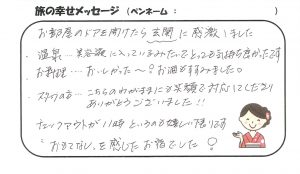 旅の幸せメッセージ (ペンネーム : )
お部屋のドアを開けたら玄関に感激しました
・温泉… 美容液に入っているみたいでとっても気持ち良かったです
・お料理… おいしかった〜! お酒もすすみました。
・スタッフの方… こちらのわがままにも笑顔で対応してくださり
ありがとうございました!!
チェックアウトが11時というのも嬉しい限りです
"おもてなし"を感じたお宿でした